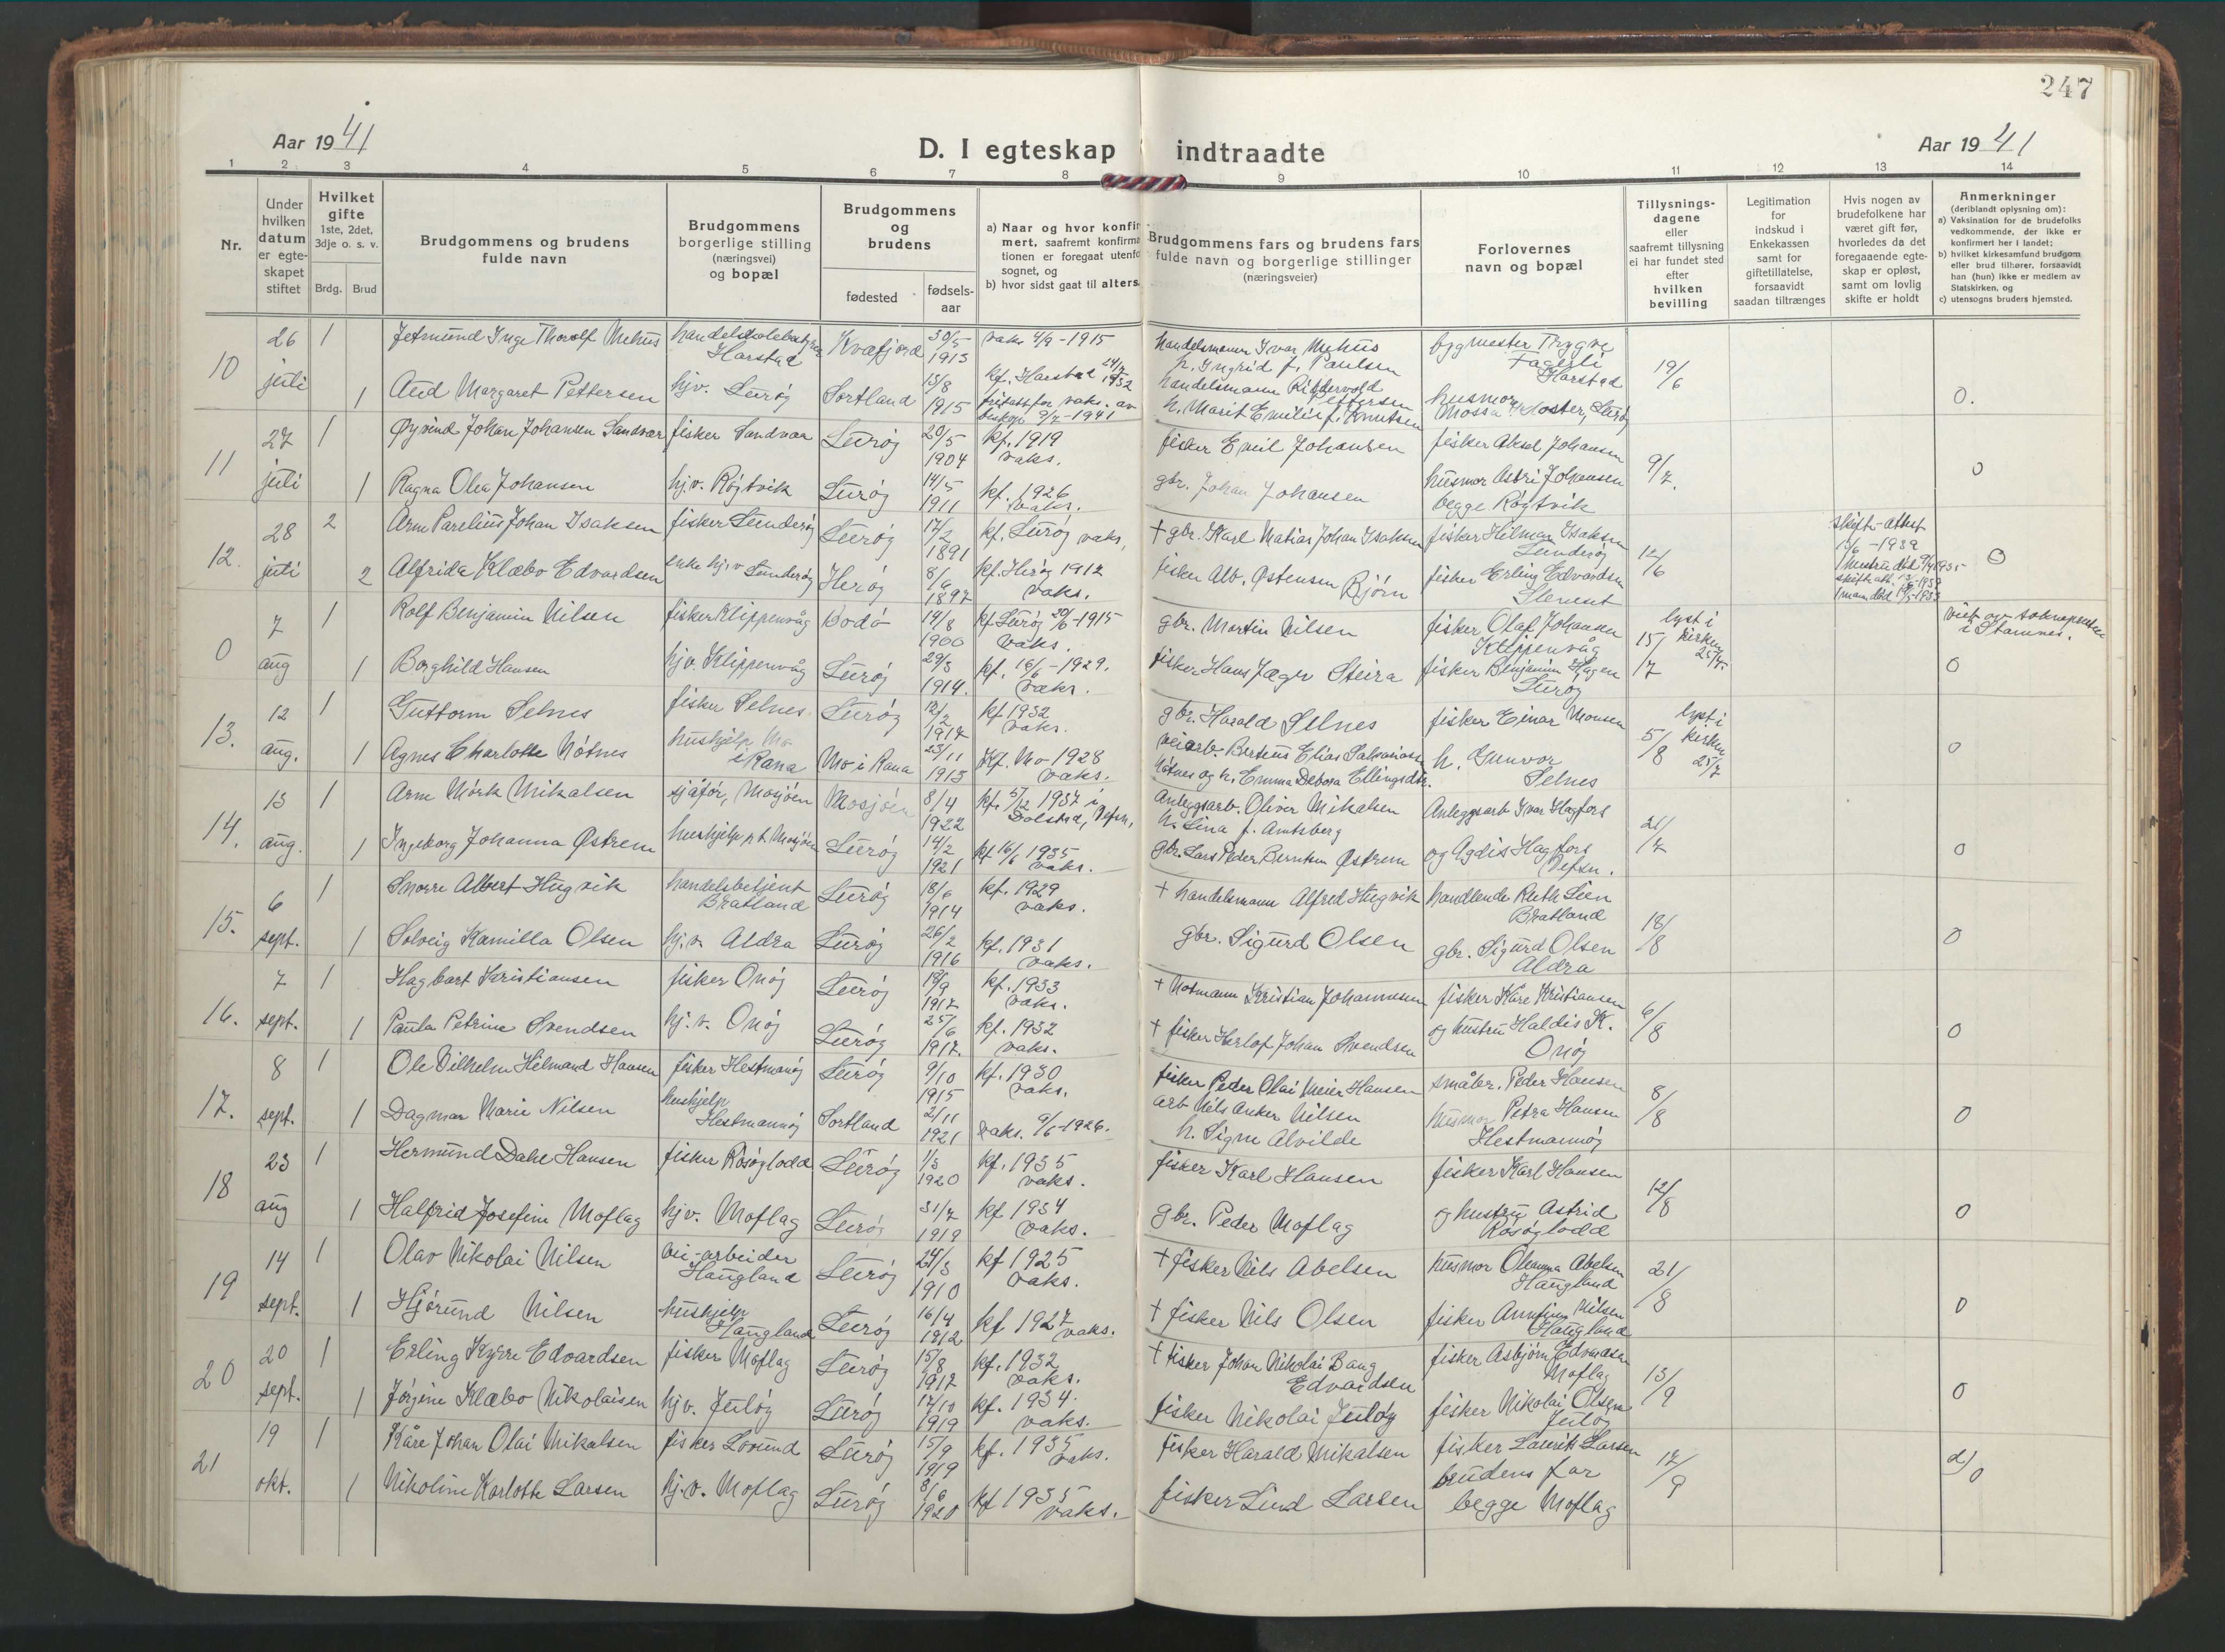 247
Aar 1941
D. I egteskap indtraadte
Aar 1941
1 2 3 4 5 6 7 8 9 10 11 12 13 14
Nr.
Under hvilken datum er egte-skapet stiftet
Hvilket gifte 1ste, 2det, 3dje o. s. v.
Brdg. Brud
Brudgommens og brudens fulde navn
Brudgommens borgerlige stilling (næringsvei) og bopæl
Brudgommens og brudens
fødested
fødsels-aar
a) Naar og hvor konfir-
mert, saafremt konfirma
tionen er foregaat utenfo
sognet, og
b) hvor sidst gaat til alters.
Brudgommens fars og brudens fars
fulde navn og borgerlige stillinger
(næringsveier)
Forlovernes
navn og bopæl
Tillysnings-
dagene
eller
saafremt tillysning
ei har fundet sted
efter
hvilken
bevilling
Legitimation
for
indskud i
Enkekassen
samt for
giftetillatelse,
forsaavidt
saadan tiltrænges
Hvis nogen av
brudefolkene har
været gift før,
hvorledes da det
foregaaende egte-
skap er opløst,
samt om lovlig
skifte er holdt
Anmerkninger
(deriblandt oplysning om):
a) Vaksination for de brudefolks
vedkommende, der ikke er
konfirmert her i landet;
b) hvilket kirkesamfund brudgom
eller brud tilhører, forsaavidt
han (hun) ikke er medlem av
Statskirken, og
c) utensogns bruders hjemsted.
10 26 juli 1 Jetmund Inge Thorolf Mehus Harstad Kvæfjord 30/5 1913 vaks 4/9-1915 handelsmann Ivar Mehus h. Ingrid f. Paulsen bygmester Trygve Faglili Harstad 19/6
1 Aud Margaret Pettersen hjv. Lurøy Sortland 13/8 1915 kf. Harstad 24/7 1932 fritatt for vaks. av biskop 9/7-1941 handelsmann Riddervold Pettersen h. Marit Emilie f. Knutsen husmor Mossa Kloster, Lurøy 0.
11 27 juli 1 Øyvind Johan Johansen Sandvær fisker Sandvær Lurøy 20/5 1904 kf. 1919 vaks. fisker Emil Johansen fisker Aksel Johansen 9/7.
1 Ragna Olea Johansen hj.v. Røytvik Lurøy 14/5 1911 kf. 1926 vaks. gbr. Johan Johansen husmor Astri Johansen begge Røytvik 0
12. 28 juli 2 Arne Parelius Johan Isaksen fisker Sunderøy Lurøy 17/2 1891 kf. Lurøy vaks, † gbr. Karl Matias Johan Isaksen fisker Hilmar Isaksen Sunderøy 12/6 skifte-attest 13/6-1939
2 Alfrida Klæbo Edvardsen enke hj.v Sunderøy Herøy 8/6 1897 kf. Herøy 1912 vaks. fisker Alb. Østensen Bjørn fisker Erling Edvardsen 0
0 7 aug 1 Rolf Benjamin Nilsen fisker Klippenvåg Bodø 14/8 1900 kf Lurøy 20/6-1915 vaks. gbr. Martin Nilsen fisker Olaf Johansen Klippenvåg 15/7 lyst i kirken 25/5 viet av sokneprest i Stamnes.
1 Borghild Hansen hjv. Klippenvåg Lurøy 29/3 1914. kf. 16/6-1929. vaks. fisker Hans Jæger Steira fisker Benjamin Hagen Lurøy 0
13. 12 aug. 1 Guttorm Selnes fisker Selnes Lurøy 12/2 1917 kf 1932 vaks. gbr. Harald Selnes fisker Einar Monsen 5/8 lyst i kirken 25/7
1 Agnes Charlotte Nøtnes hushjelp Mo i Rana Mo i Rana 23/11 1913 Kf. Mo 1928 vaks. veiarb. Berteus Elias Sakariasen Nøtnes og h. Emma Debora Ellingsdtr. h. Gunvor Selnes 0
14. 13 aug. 1 Arne Mørk Mikalsen sjåfør, Mosjøen Mosjøen 8/4 1922 kf. 5/12 1937 i Dolstad, Vefsn, Anleggsarb. Oliver Mikalsen h. Lina f. Amtsberg Anleggsarb Ivar Hagfors 21/7
1 Ingeborg Johanna Østrem hushjelp p.t. Mosjøen Lurøy 14/2 1921 kf 16/6 1935 vaks. gbr. Lars Peder Berntsen Østrem og Agdis Hagfors Vefsn. 0
15. 6 sept. 1 Snorre Albert Hugvik handelsbetjent Bratland Lurøy 18/6 1914 kf. 1929 vaks. † handelsmann Alfred Hugvik handlende Ruth Lien Bratland 18/8
1 Solveig Kamilla Olsen hj.v. Aldra Lurøy 26/2 1916 kf. 1931 vaks. gbr. Sigurd Olsen gbr. Sigurd Olsen Aldra 0
16. 7 sept. 1 Hagbart Kristiansen fisker Onøy Lurøy 19/9 1917 kf. 1933 vaks. † Notmann Kristian Johannessen fisker Kåre Kristiansen 6/8
1 Paula Petrine Svendsen hj.v. Onøy Lurøy 25/6 1917. kf. 1932 vaks. † fisker Herlof Johan Svendsen og hustru Haldis K. Onøy 0
17. 8 sept. 1 Ole Vilhelm Hilmand Hansen fisker Hestmanøy Lurøy 9/10 1915 kf. 1930 vaks. fisker Peder Olai Meier Hansen småbr. Peder Hansen 8/8
1 Dagmar Marie Nilsen hushjelp Hestmannøy Sortland 2/11 1921 vaks. 9/6-1926. arb Nils Anker Nilsen h. Signe Alvilde husmor Petra Hansen Hestmannøy 0
18 23 aug 1 Hermund Dahl Hansen fisker Råsøyflodd Lurøy 1/3 1920 kf. 1935 vaks. fisker Karl Hansen fisker Karl Hansen 12/8
1 Halfrid Josefine Moflag hjv. Moflag Lurøy 31/7 1919 kf 1934 vaks. gbr. Peder Moflag og hustru Astrid 0
19 14 sept. 1 Olav Nikolai Nilsen vei-arbeider Haugland Lurøy 24/3 1910 kf 1925 vaks. † fisker Nils Abelsen husmor Oleanna Abelsen Haugland 21/8
1 Hjørund Nilsen hushjelp Haugland Lurøy 16/4 1912 kf 1927 vaks. † fisker Nils Olsen fisker Annfinn Nilsen Haugland 0
20 20 sept. 1 Erling Kyrre Edvardsen fisker Moflag Lurøy 15/8 1917 kf. 1932 vaks. † fisker Johan Nikolai Bang Edvardsen fisker Asbjørn Edvardsen Moflag 13/9
1 Jørgine Klæbo Nikolaisen hjv. Juløy Lurøy 17/10 1919 kf. 1934. vaks. fisker Nikolai Juløy fisker Nikolai Olsen Juløy 0
21 19 okt. 1 Kåre Johan Olai Mikalsen fisker Lovund Lurøy 15/9 1919 kf. 1935 vaks. fisker Harald Mikalsen fisker Laurits Larsen 17/9
1 Nikoline Karlotte Larsen hj.v. Moflag Lurøy 8/6 1920 kf 1935 vaks. fisker Lind Larsen brudens far begge Moflag a) 0